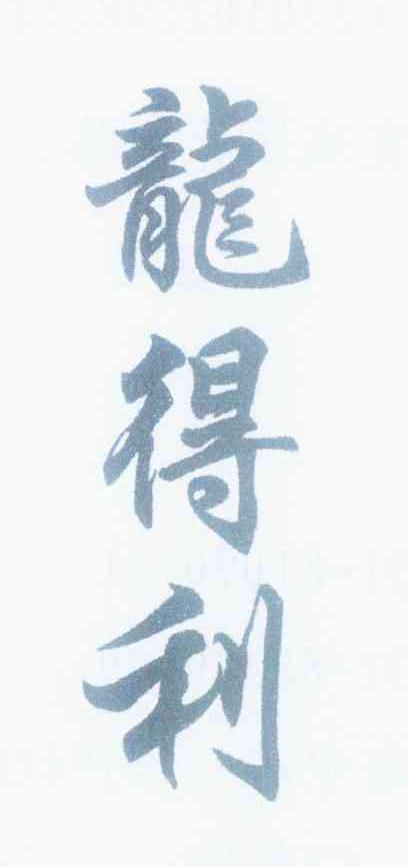 龍得利